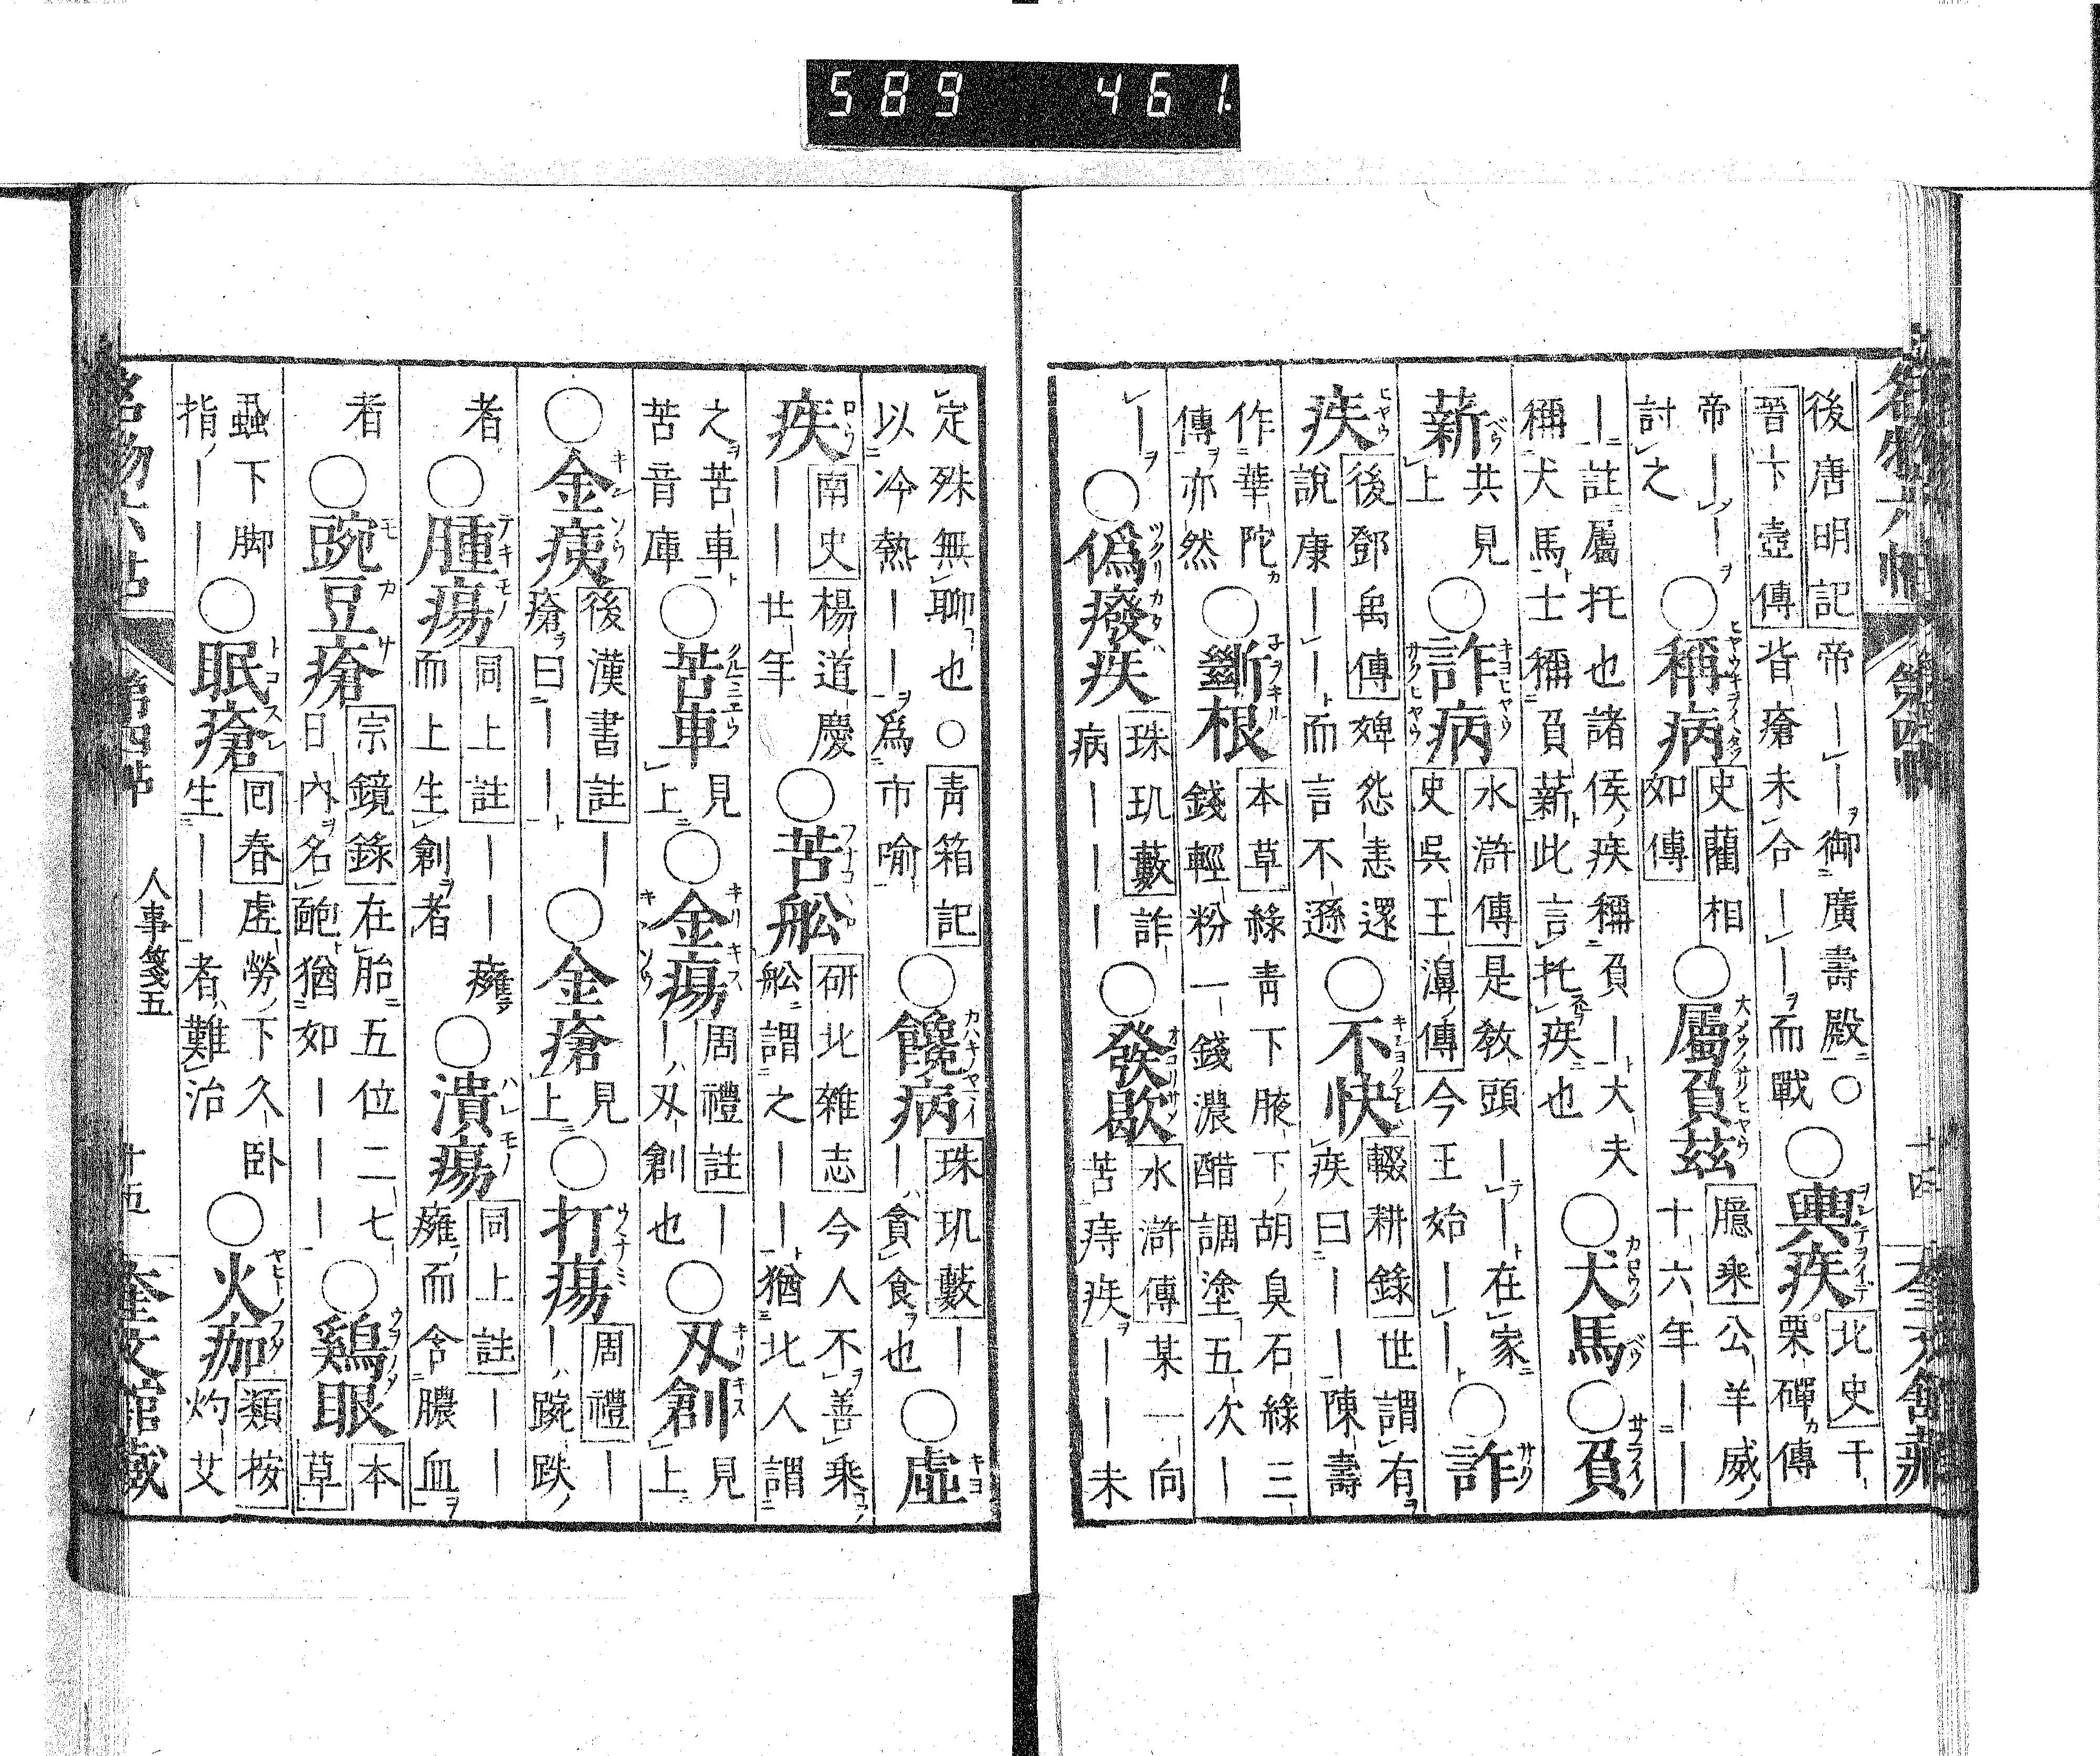 589 461.
名物六帖 第四帖 十四 奎文館藏
後唐明記帝――御廣壽殿○晉卞壺傳背瘡未合――而戰○輿疾北史干栗磾傳
帝――討之○稱病史藺相如傳○屬負茲臆乘公羊威十六年――
―註屬托也諸侯疾稱負―大夫稱犬馬士稱負薪此言托疾也○犬馬○負
薪共見上○詐病水滸傳是教頭――在家史呉王濞傳今王始――○詐
疾後鄧禹傳婢怨恚還說康――而言不遜○不快輟耕錄世謂有疾曰――陳壽
作華陀傳亦然○斷根本草綠青下腋下胡臭石綠三錢輕粉一錢濃醋調塗五次―
―○偽癈疾珠玑藪詐病―――○發歇水滸傳某一向苦痔疾――未
定殊無聊也○青箱記以冷熱――為市喻○饞病珠玑藪――貪食也○虛
疾南史楊道慶――廿年○苦舩研北雜志今人不善乘舩謂之――猶北人謂
之苦車苦音庫○苦車見上○金瘍周禮註――刄創也○刄創見上
○金痍後漢書註―瘡曰――○金瘡見上○打瘍周禮――踠跌
者○腫瘍同上註――癰而上生創者○潰瘍同上註――癰而含膿血
者○豌豆瘡宗鏡錄在胎五位二七日內名皰猶如―――○鷄眼本草
蝨下脚指――○眠瘡回春虛勞下久卧生――者難治○火痂類按灼艾
名物六帖 第四帖 人事箋五 十五 奎文館藏